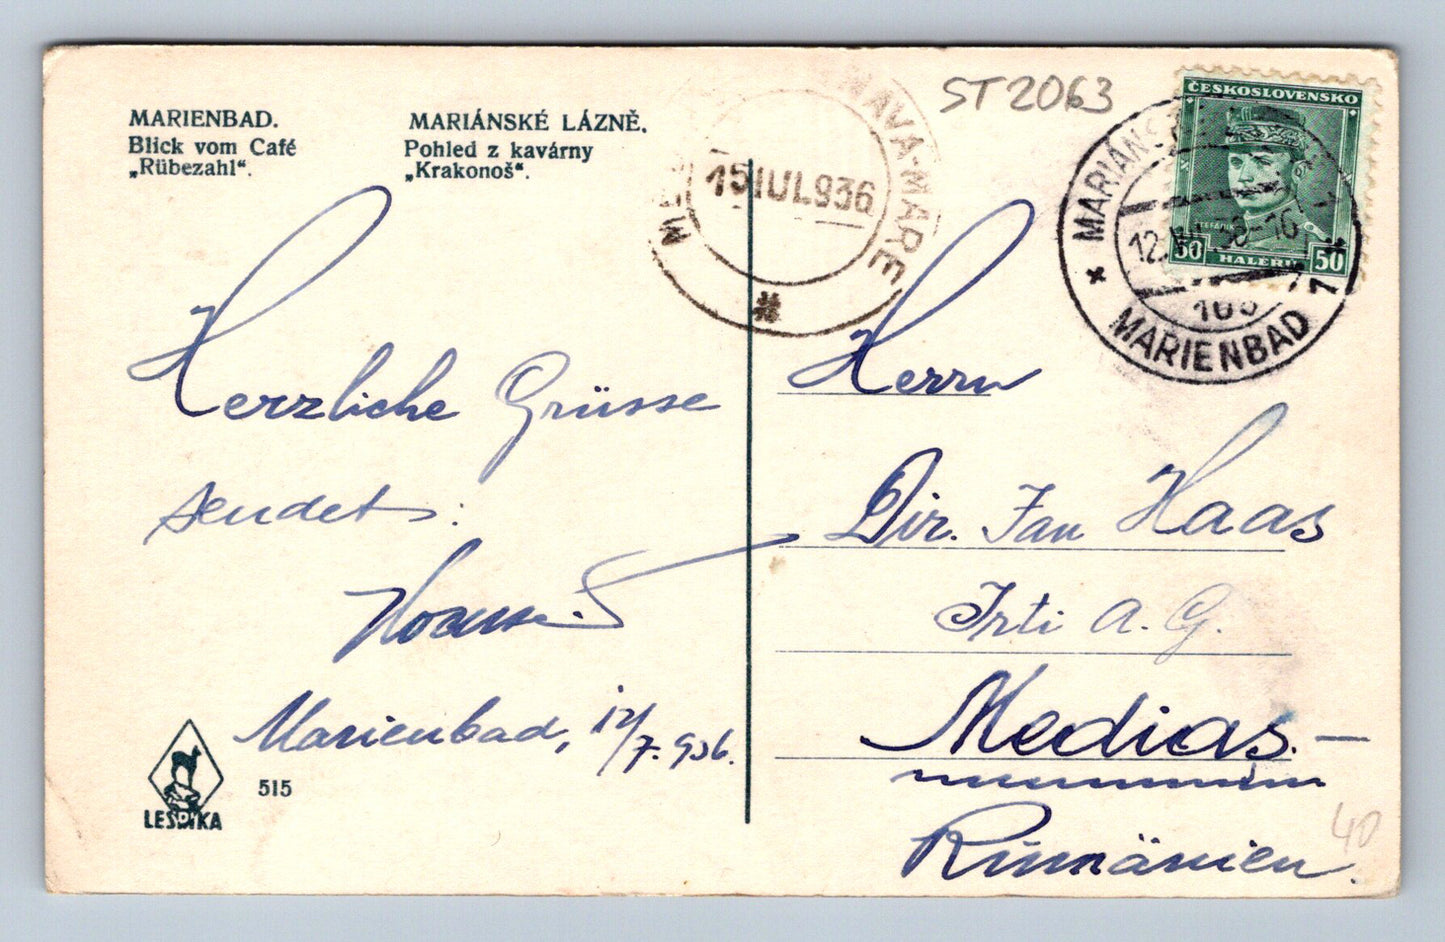 MARIENBAD.
Blick vom Café
„Rübezahl“.
MARIÁNSKÉ LÁZNĚ.
Pohled z kavárny
„Krakonoš“.
ST2063
15 IUL 936
NAVA-MARE
ČESKOSLOVENSKO
50 HALÉŘŮ 50
MARIÁNS
MARIENBAD
Herzliche Grüsse
sendet:
Marienbad, 12/7. 936.
Herrn
Dir. Jan Haas
Irti A. G.
Medias.—
Rumänien.
40
LESPIKA
515